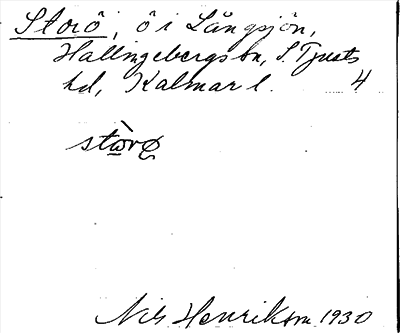 Storö, ö i Långsjön,
Hallingebergs sn, S. Tjusts
hd, Kalmar l. 4
stòrø
Nils Henrikson 1930